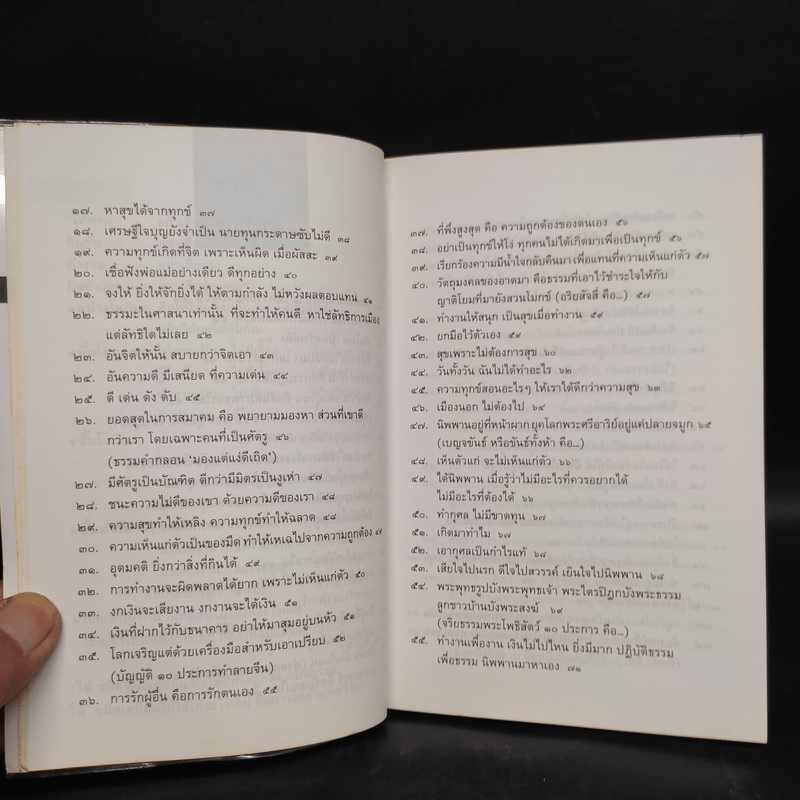 ๑๗. หาสุขได้จากทุกข์ ๓๗
๑๘. เศรษฐีใจบุญยังจำเป็น นายทุนกระดาษซับไม่ดี ๓๘
๑๙. ความทุกข์เกิดที่จิต เพราะเห็นผิด เมื่อผัสสะ ๓๙
๒๐. เชื่อฟังพ่อแม่อย่างเดียว ดีทุกอย่าง ๔๐
๒๑. จงให้ ยิ่งให้จักยิ่งได้ ให้ตามกำลัง ไม่หวังผลตอบแทน ๔๑
๒๒. ธรรมะในศาสนาเท่านั้น ที่จะทำให้คนดี หาใช่ลัทธิการเมือง
แต่ลัทธิใดไม่เลย ๔๒
๒๓. อันจิตให้นั้น สบายกว่าจิตเอา ๔๓
๒๔. อันความดี มีเสนียด ที่ความเด่น ๔๔
๒๕. ดี เด่น ดัง ดับ ๔๕
๒๖. ยอดสุดในการสมาคม คือ พยายามมองหา ส่วนที่เขาดี
กว่าเรา โดยเฉพาะคนที่เป็นศัตรู ๔๖
(ธรรมคำกลอน ‘มองแต่แง่ดีเถิด’)
๒๗. มีศัตรูเป็นบัณฑิต ดีกว่ามีมิตรเป็นงูเห่า ๔๗
๒๘. ชนะความไม่ดีของเขา ด้วยความดีของเรา ๔๘
๒๙. ความสุขทำให้เหลิง ความทุกข์ทำให้ฉลาด ๔๘
๓๐. ความเห็นแก่ตัวเป็นของมืด ทำให้เหเฉไปจากความถูกต้อง ๗
๓๑. อุดมคติ ยิ่งกว่าสิ่งที่กินได้ ๔๙
๓๒. การทำงานจะผิดพลาดได้ยาก เพราะไม่เห็นแก่ตัว ๕๐
๓๓. งกเงินจะเสียงาน งกงานจะได้เงิน ๕๑
๓๔. เงินที่ฝากไว้กับธนาคาร อย่าให้มาสุมอยู่บนหัว ๕๑
๓๕. โลกเจริญแต่ด้วยเครื่องมือสำหรับเอาเปรียบ ๕๒
(บัญญัติ ๑๐ ประการทำลายจีน)
๓๖. การรักผู้อื่น คือการรักตนเอง ๕๕
๓๗. ที่พึ่งสูงสุด คือ ความถูกต้องของตนเอง ๕๖
๓๘. อย่าเป็นทุกข์ให้โง่ ทุกคนไม่ได้เกิดมาเพื่อเป็นทุกข์ ๕๖
๓๙. เรียกร้องความมีน้ำใจกลับคืนมา เพื่อแทนที่ความเห็นแก่ตัว ๕๗
๔๐. วัตถุมงคลของอาตมา คือธรรมที่เอาไว้ชำระใจให้กับ
ญาติโยมที่มายังสวนโมกข์ (อริยสัจสี่ คือ...) ๕๗
๔๑. ทำงานให้สนุก เป็นสุขเมื่อทำงาน ๕๙
๔๒. ยกมือไว้ตัวเอง ๕๙
๔๓. สุขเพราะไม่ต้องการสุข ๖๐
๔๔. วันทั้งวัน ฉันไม่ได้ทำอะไร ๖๒
๔๕. ความทุกข์สอนอะไรๆ ให้เราได้ดีกว่าความสุข ๖๓
๔๖. เมืองนอก ไม่ต้องไป ๖๔
๔๗. นิพพานอยู่ที่หน้าผาก ยุคโลกพระศรีอาริย์อยู่แค่ปลายจมูก ๖๕
(เบญจขันธ์ หรือขันธ์ทั้งห้า คือ...)
๔๘. เห็นตัวแก่ จะไม่เห็นแก่ตัว ๖๖
๔๙. ได้นิพพาน เมื่อรู้ว่าไม่มีอะไรที่ควรอยากได้
ไม่มีอะไรที่ต้องได้ ๖๖
๕๐. ทำกุศล ไม่มีขาดทุน ๖๗
๕๑. เกิดมาทำไม ๖๗
๕๒. เอากุศลเป็นกำไรแท้ ๖๘
๕๓. เสียใจไปนรก ดีใจไปสวรรค์ เย็นใจไปนิพพาน ๖๘
๕๔. พระพุทธรูปบังพระพุทธเจ้า พระไตรปิฎกบังพระธรรม
ลูกชาวบ้านบังพระสงฆ์ ๖๙
(จริยธรรมพระโพธิสัตว์ ๑๐ ประการ คือ...)
๕๕. ทำงานเพื่องาน เงินไม่ไปไหน ยิ่งมีมาก ปฏิบัติธรรม
เพื่อธรรม นิพพานมาหาเอง ๗๑